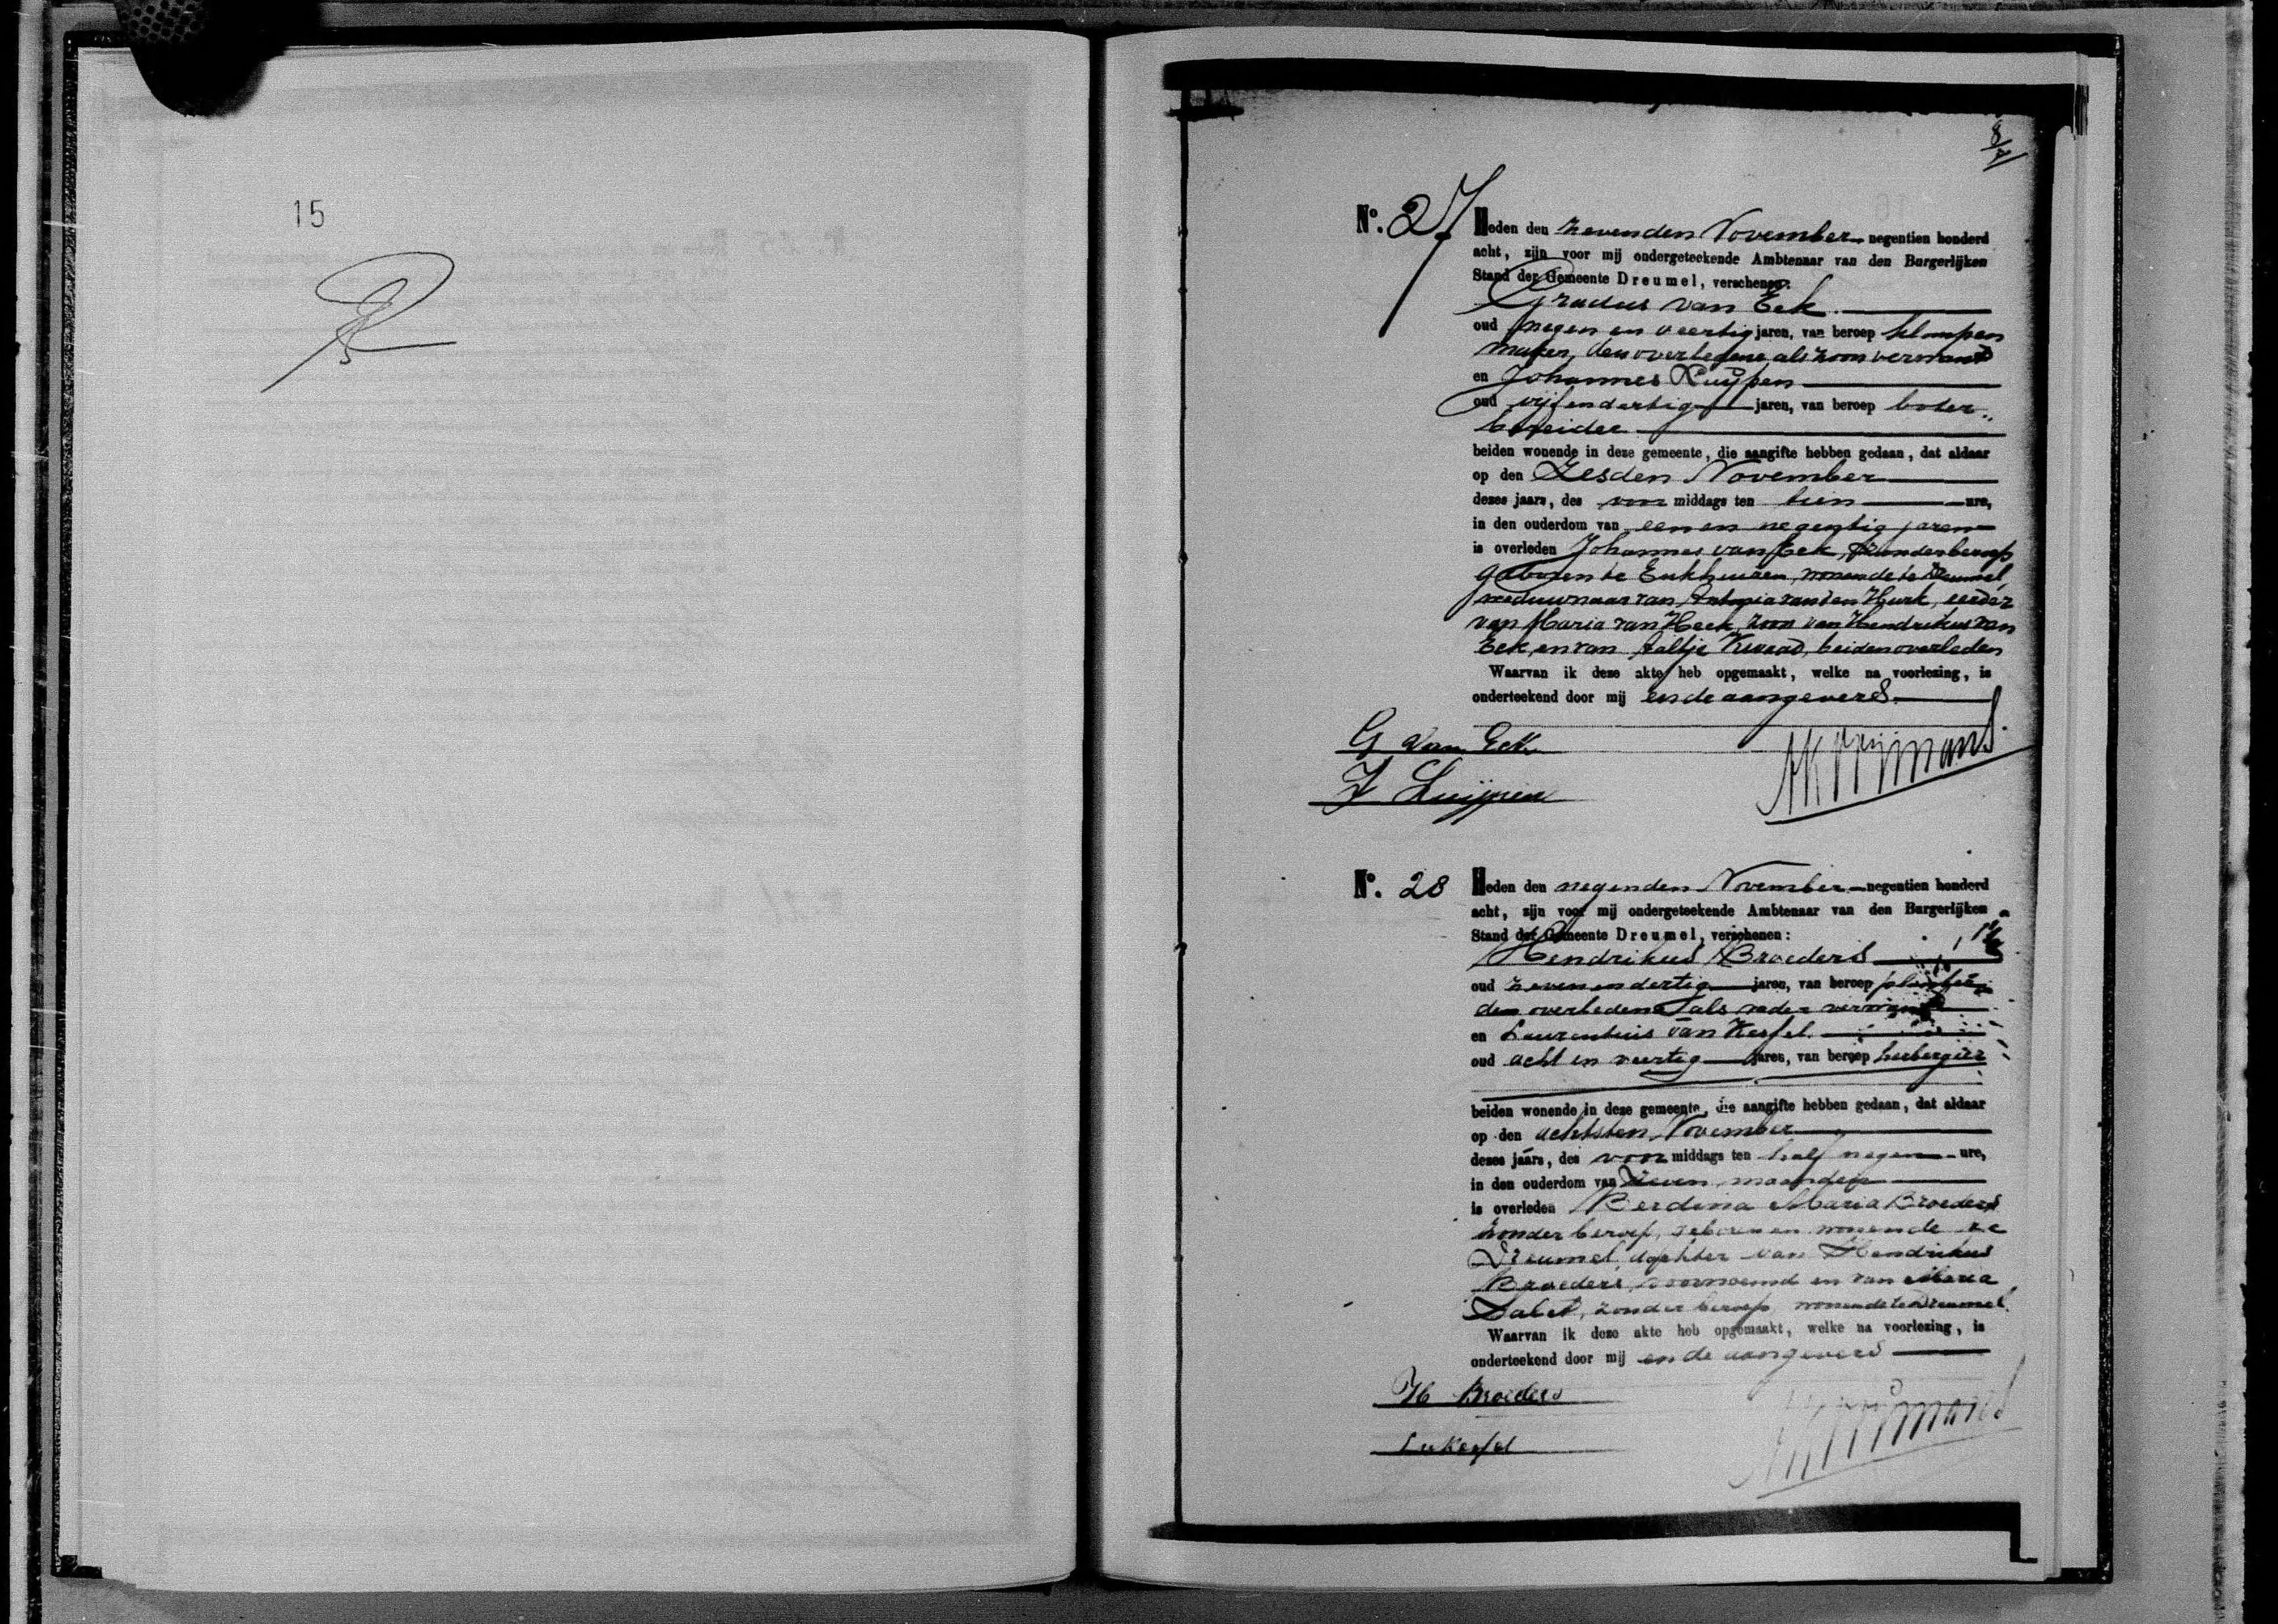 15
8
No. 27 Heden den zevenden November negentien honderd
acht, zijn voor mij ondergeteekende Ambtenaar van den Burgerlijken
Stand der Gemeente Dreumel, verschenen:
Gradus van Eck
oud negen en veertig jaren, van beroep klompen
maker, den overledene als zoon verwant
en Johannes Luijpen
oud vijfendertig jaren, van beroep boter
bereider
beiden wonende in deze gemeente, die aangifte hebben gedaan, dat aldaar
op den Zesden November
dezes jaars, des voor middags ten tien ure,
in den ouderdom van een en negentig jaren
is overleden Johannes van Eck, zonder beroep
geboren te Enkhuizen, wonende te Dreumel,
weduwnaar van Antonia van den Hurk, eerder
van Maria van Heck, zoon van Hendrikus van
Eck, en van Aaltje, beiden overleden
Waarvan ik deze akte heb opgemaakt, welke na voorlezing, is
onderteekend door mij en de aangevers.
G van Eck
J Luijpen
No. 28 Heden den negenden November negentien honderd
acht, zijn voor mij ondergeteekende Ambtenaar van den Burgerlijken
Stand der Gemeente Dreumel, verschenen:
Hendrikus Broeders
oud zevenendertig jaren, van beroep
den overledene als vader verwant
en Laurentius van Kessel
oud acht en veertig jaren, van beroep herbergier
beiden wonende in deze gemeente, die aangifte hebben gedaan, dat aldaar
op den achtsten November
dezes jaars, des voor middags ten half negen ure,
in den ouderdom van zeven maanden
is overleden Berdina Maria Broeders
zonder beroep, geboren en wonende te
Dreumel, dochter van Hendrikus
Broeders, voornoemd en van Maria
Sabet, zonder beroep, wonende te Dreumel.
Waarvan ik deze akte heb opgemaakt, welke na voorlezing, is
onderteekend door mij en de aangevers
H Broeders